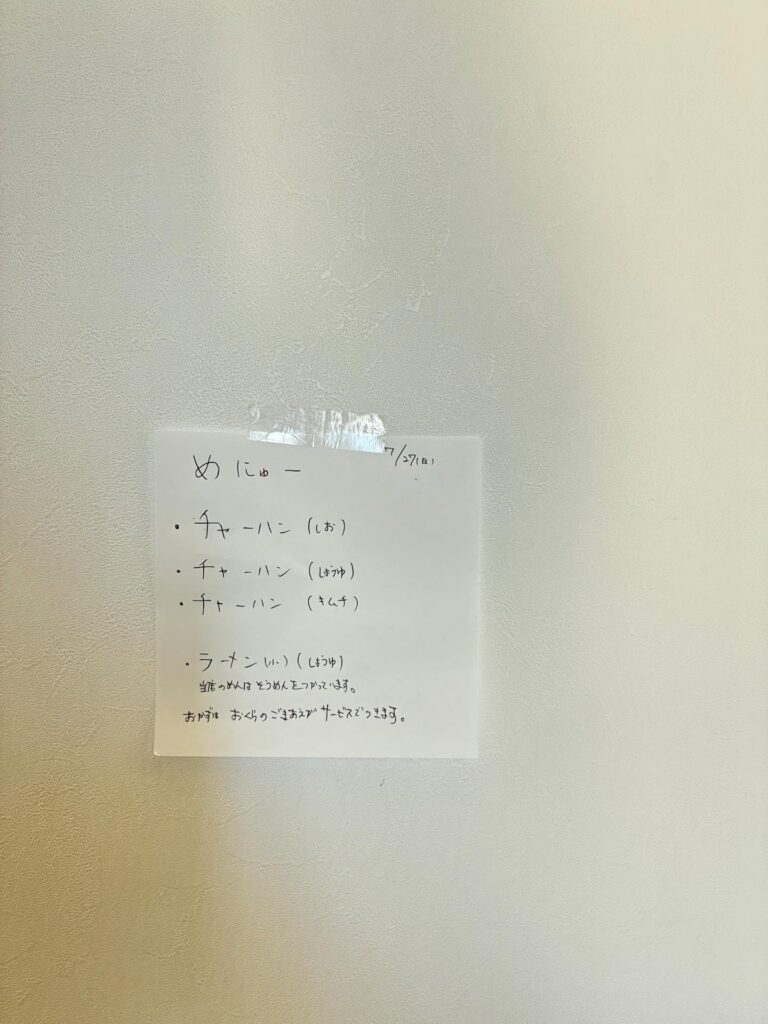 めにゅー 7/27(日)
・チャーハン (しお)
・チャーハン (しょうゆ)
・チャーハン (キムチ)
・ラーメン(小)(しょうゆ)
当店のめんは そうめんをつかっています。
おかずは おくらのごまあえが サービスでつきます。